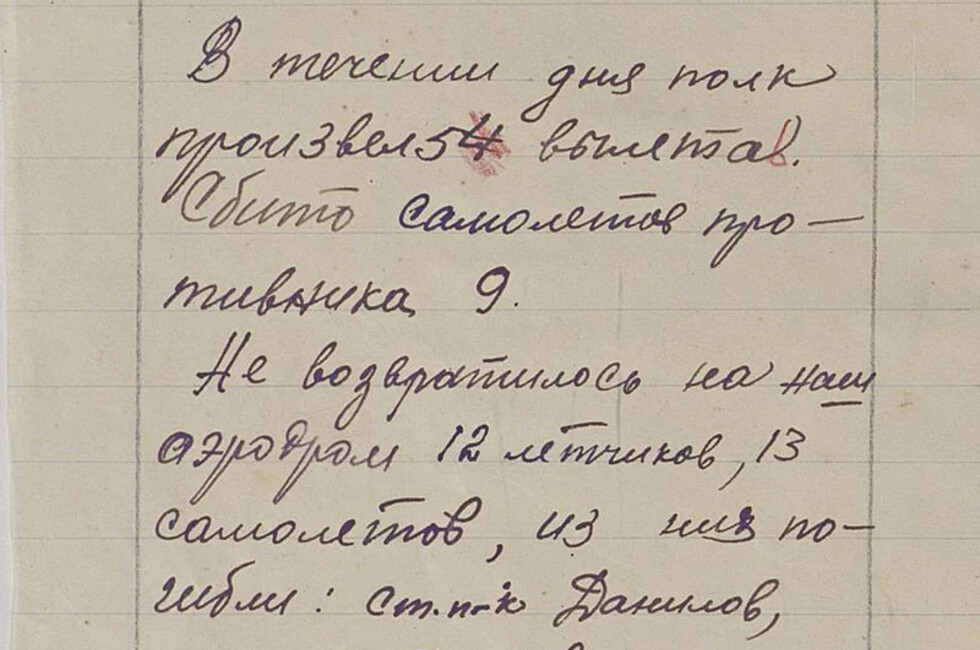 В течении дня полк
произвел 54 вылета.
Сбито самолетов про-
тивника 9.
Не возвратилось на наш
аэродром 12 летчиков, 13
самолетов, из них по-
гибли: ст. п-к Данилов,